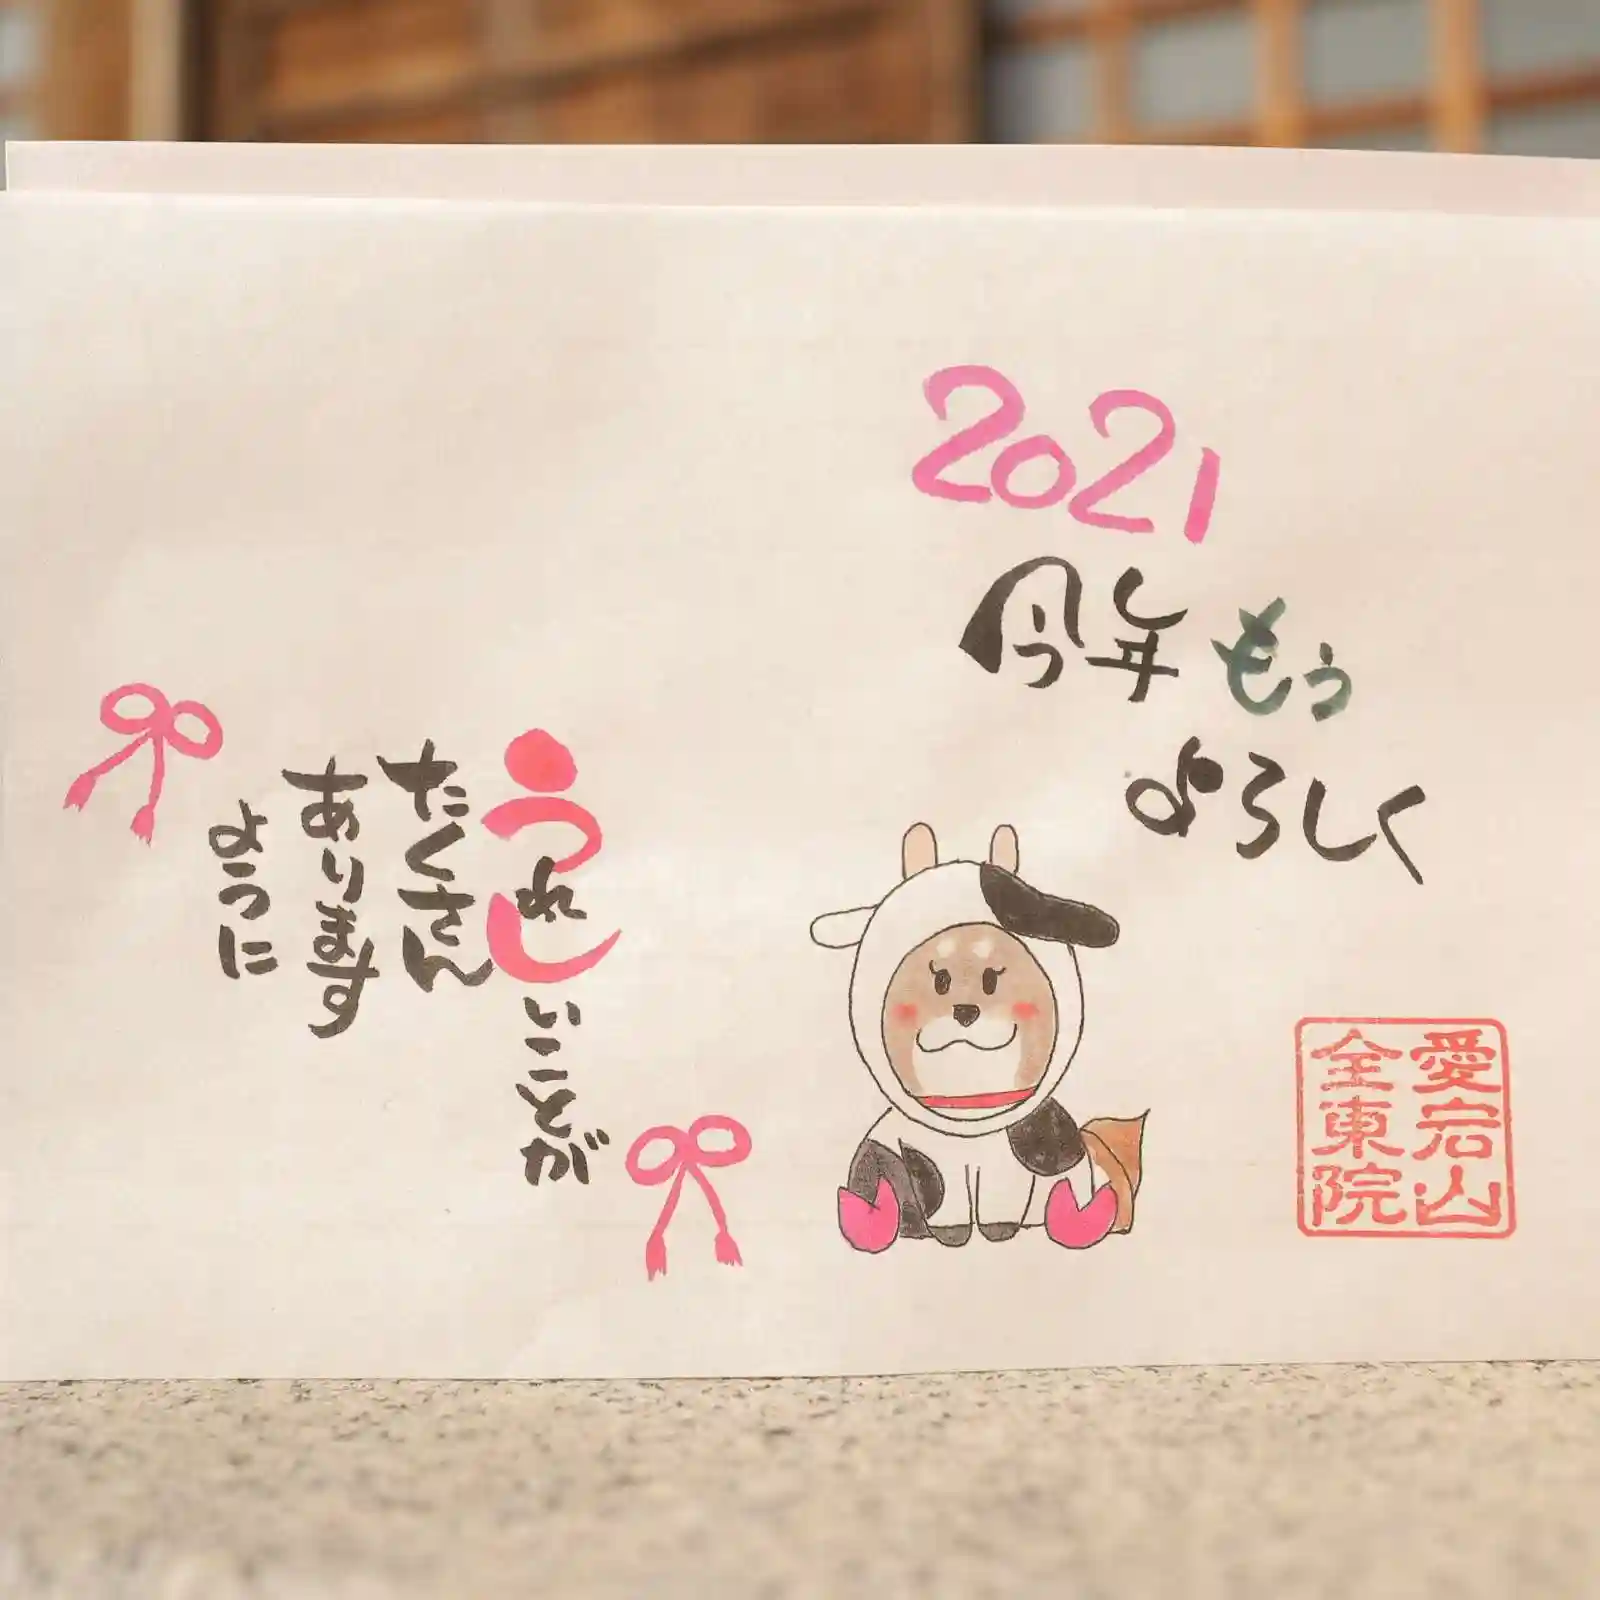 2021
今年もぅ
よろしく
うれしいことが
たくさん
あります
ように
愛宕山
全東院